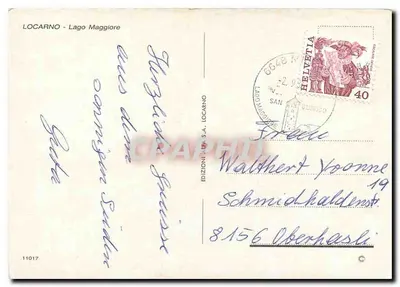 LOCARNO - Lago Maggiore
Herzliche Grüsse
aus dem
sonnigen Süden
Greta
EDIZIONI S.A., LOCARNO
6648 M
SAN
HELVETIA
40
Walthert Yvonne
Schmidhaldenstr. 19
8156 Oberhasli
11017
©